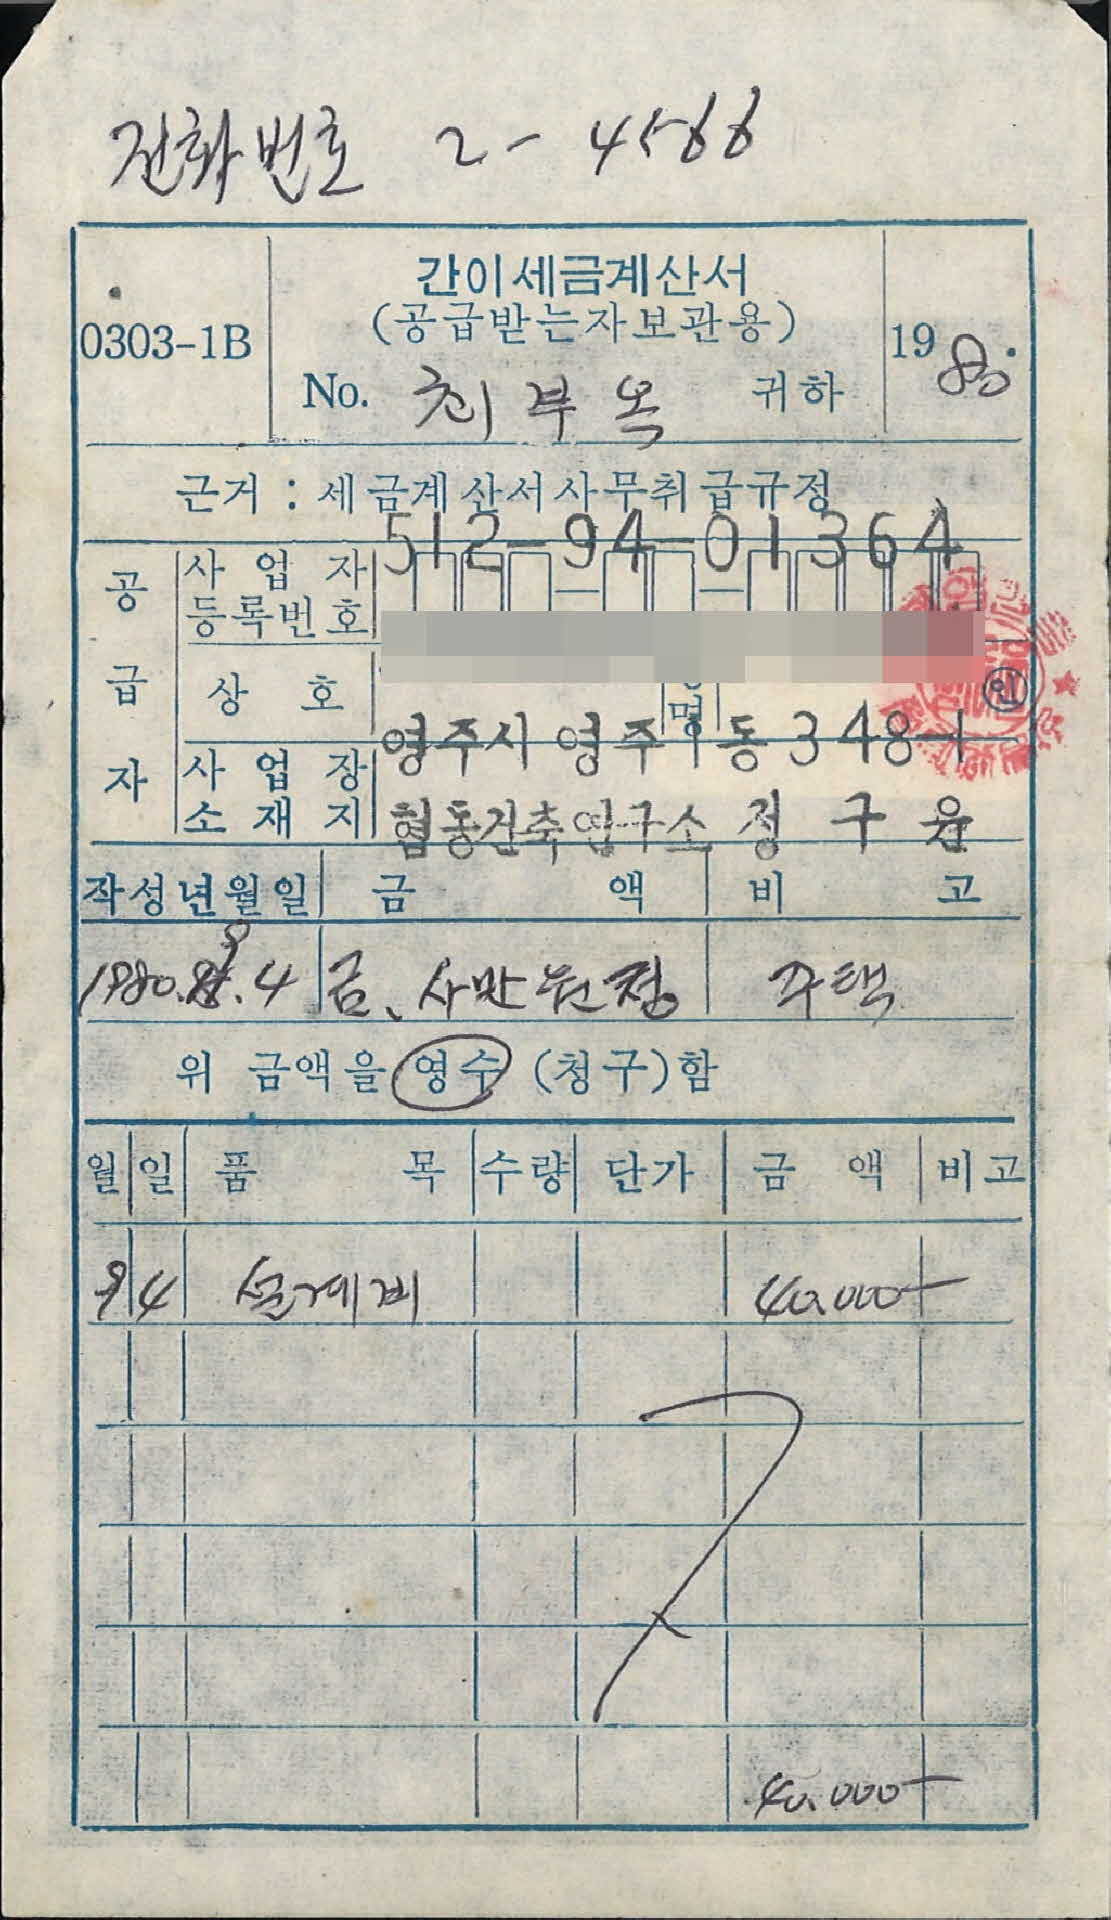 전화번호 2-4566
간이세금계산서
(공급받는자보관용)
0303-1B
No. 최부옥 귀하
1980.
근거 : 세금계산서사무취급규정
512-94-01364
공급자
사업자등록번호
상호
명
인
영주시 영주 동 348-1
사업장소재지
협동건축연구소 정구윤
작성년월일 금액 비고
1980.8.4 금, 사만원정 주택
위 금액을 영수 (청구)함
월 일 품목 수량 단가 금액 비고
8 4 설계비 40,000-
40,000-